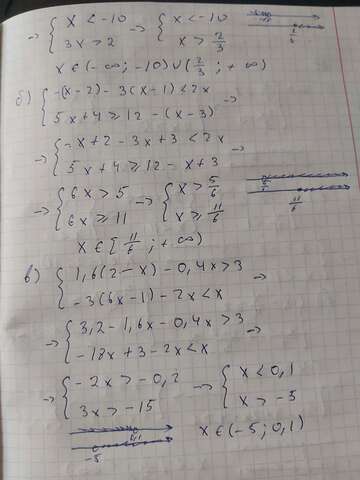 → { x < -10 → { x < -10
3x > 2 x > 2/3
2/3
x ∈ (-∞; -10) ∪ (2/3; +∞)
б) { -(x-2) - 3(x-1) < 2x →
5x+4 ≥ 12 - (x-3)
→ { -x+2 - 3x+3 < 2x →
5x+4 ≥ 12 - x+3
→ { 6x > 5 → { x > 5/6
6x ≥ 11 x ≥ 11/6
5/6
11/6
x ∈ [11/6; +∞)
в) { 1,6(2-x) - 0,4x > 3 →
-3(6x-1) - 2x < x
→ { 3,2 - 1,6x - 0,4x > 3 →
-18x + 3 - 2x < x
→ { -2x > -0,2 → { x < 0,1
3x > -15 x > -5
0,1
-5
x ∈ (-5; 0,1)